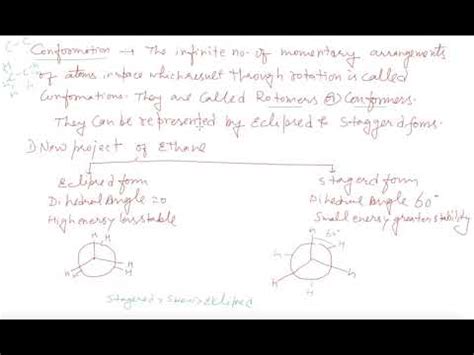 C-C
Conformation → The infinite no. of momentary arrangements
of atoms in space which result through rotation is called
Conformations. They are Called Rotomers (or) Conformers.
They Can be represented by Eclipsed & Staggerd forms.
1) New project of Ethane
Eclipsed form
Dihedral Angle = 0
High energy less stable
H H
H H
H H
Stagerd form
Dihedral Angle 60°
Small energy greater stability
H 60°
H H
H H
H
Stagered > Skew > Eclipsed